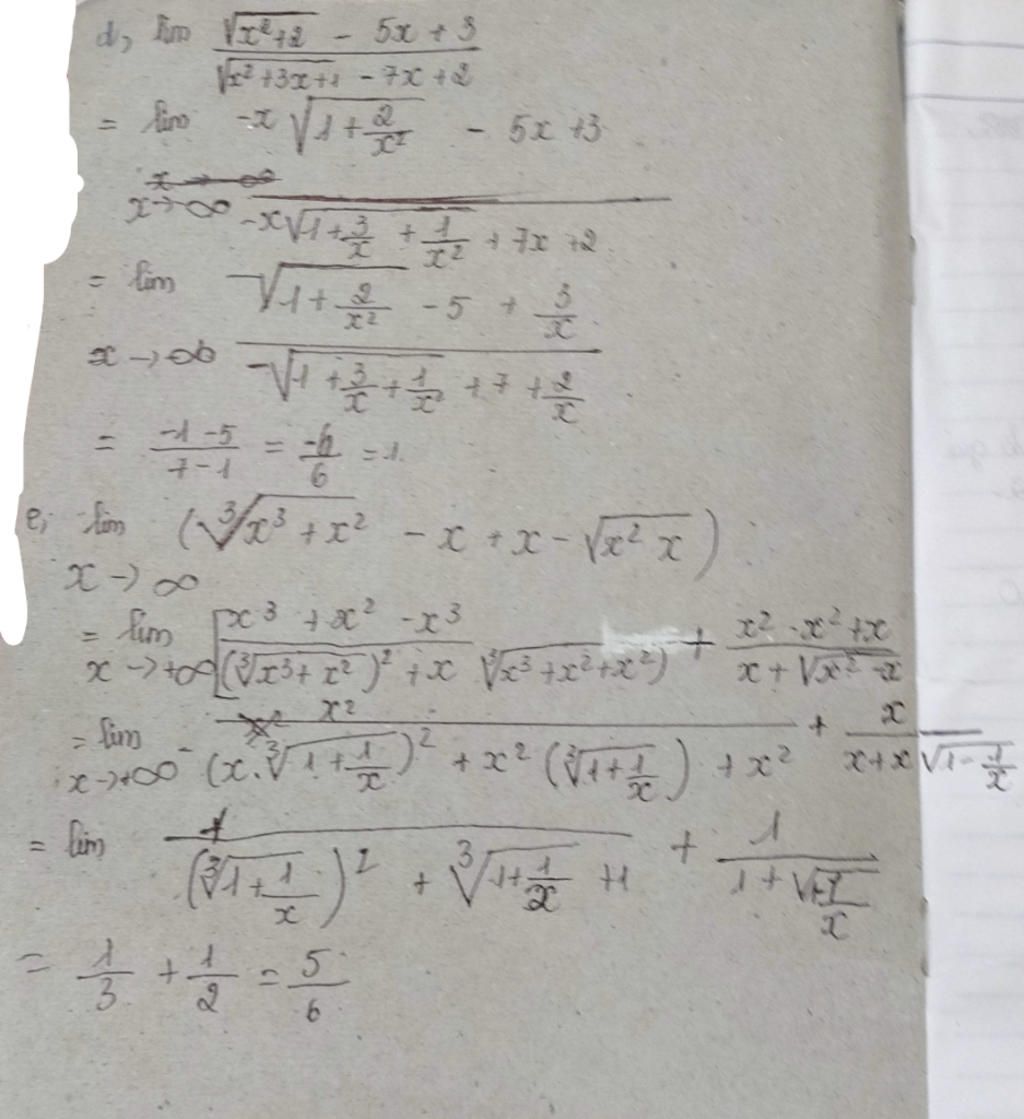 d, lim (√(x²+2) - 5x + 3)/(√(x²+3x+1) - 7x + 2)
= lim x→-∞ (-x√(1+2/x²) - 5x + 3)/(-x√(1+3/x+1/x²) + 7x + 2)
= lim x→-∞ (-√(1+2/x²) - 5 + 3/x)/(-√(1+3/x+1/x²) + 7 + 2/x)
= (-1-5)/(7-1) = -6/6 = 1.
e, lim x→∞ (∛(x³+x²) - x + x - √(x² x))
= lim x→+∞ [(x³+x²-x³)/((∛(x³+x²))²+x ∛(x³+x²+x²)) + (x²-x²+x)/(x+√(x²-x))
= lim x→+∞ x²/((x.∛(1+1/x))² + x²(∛(1+1/x)) + x²) + x/(x+x√(1-1/x))
= lim 1/((∛(1+1/x))² + ∛(1+1/x) + 1) + 1/(1+√(1-1/x))
= 1/3 + 1/2 = 5/6